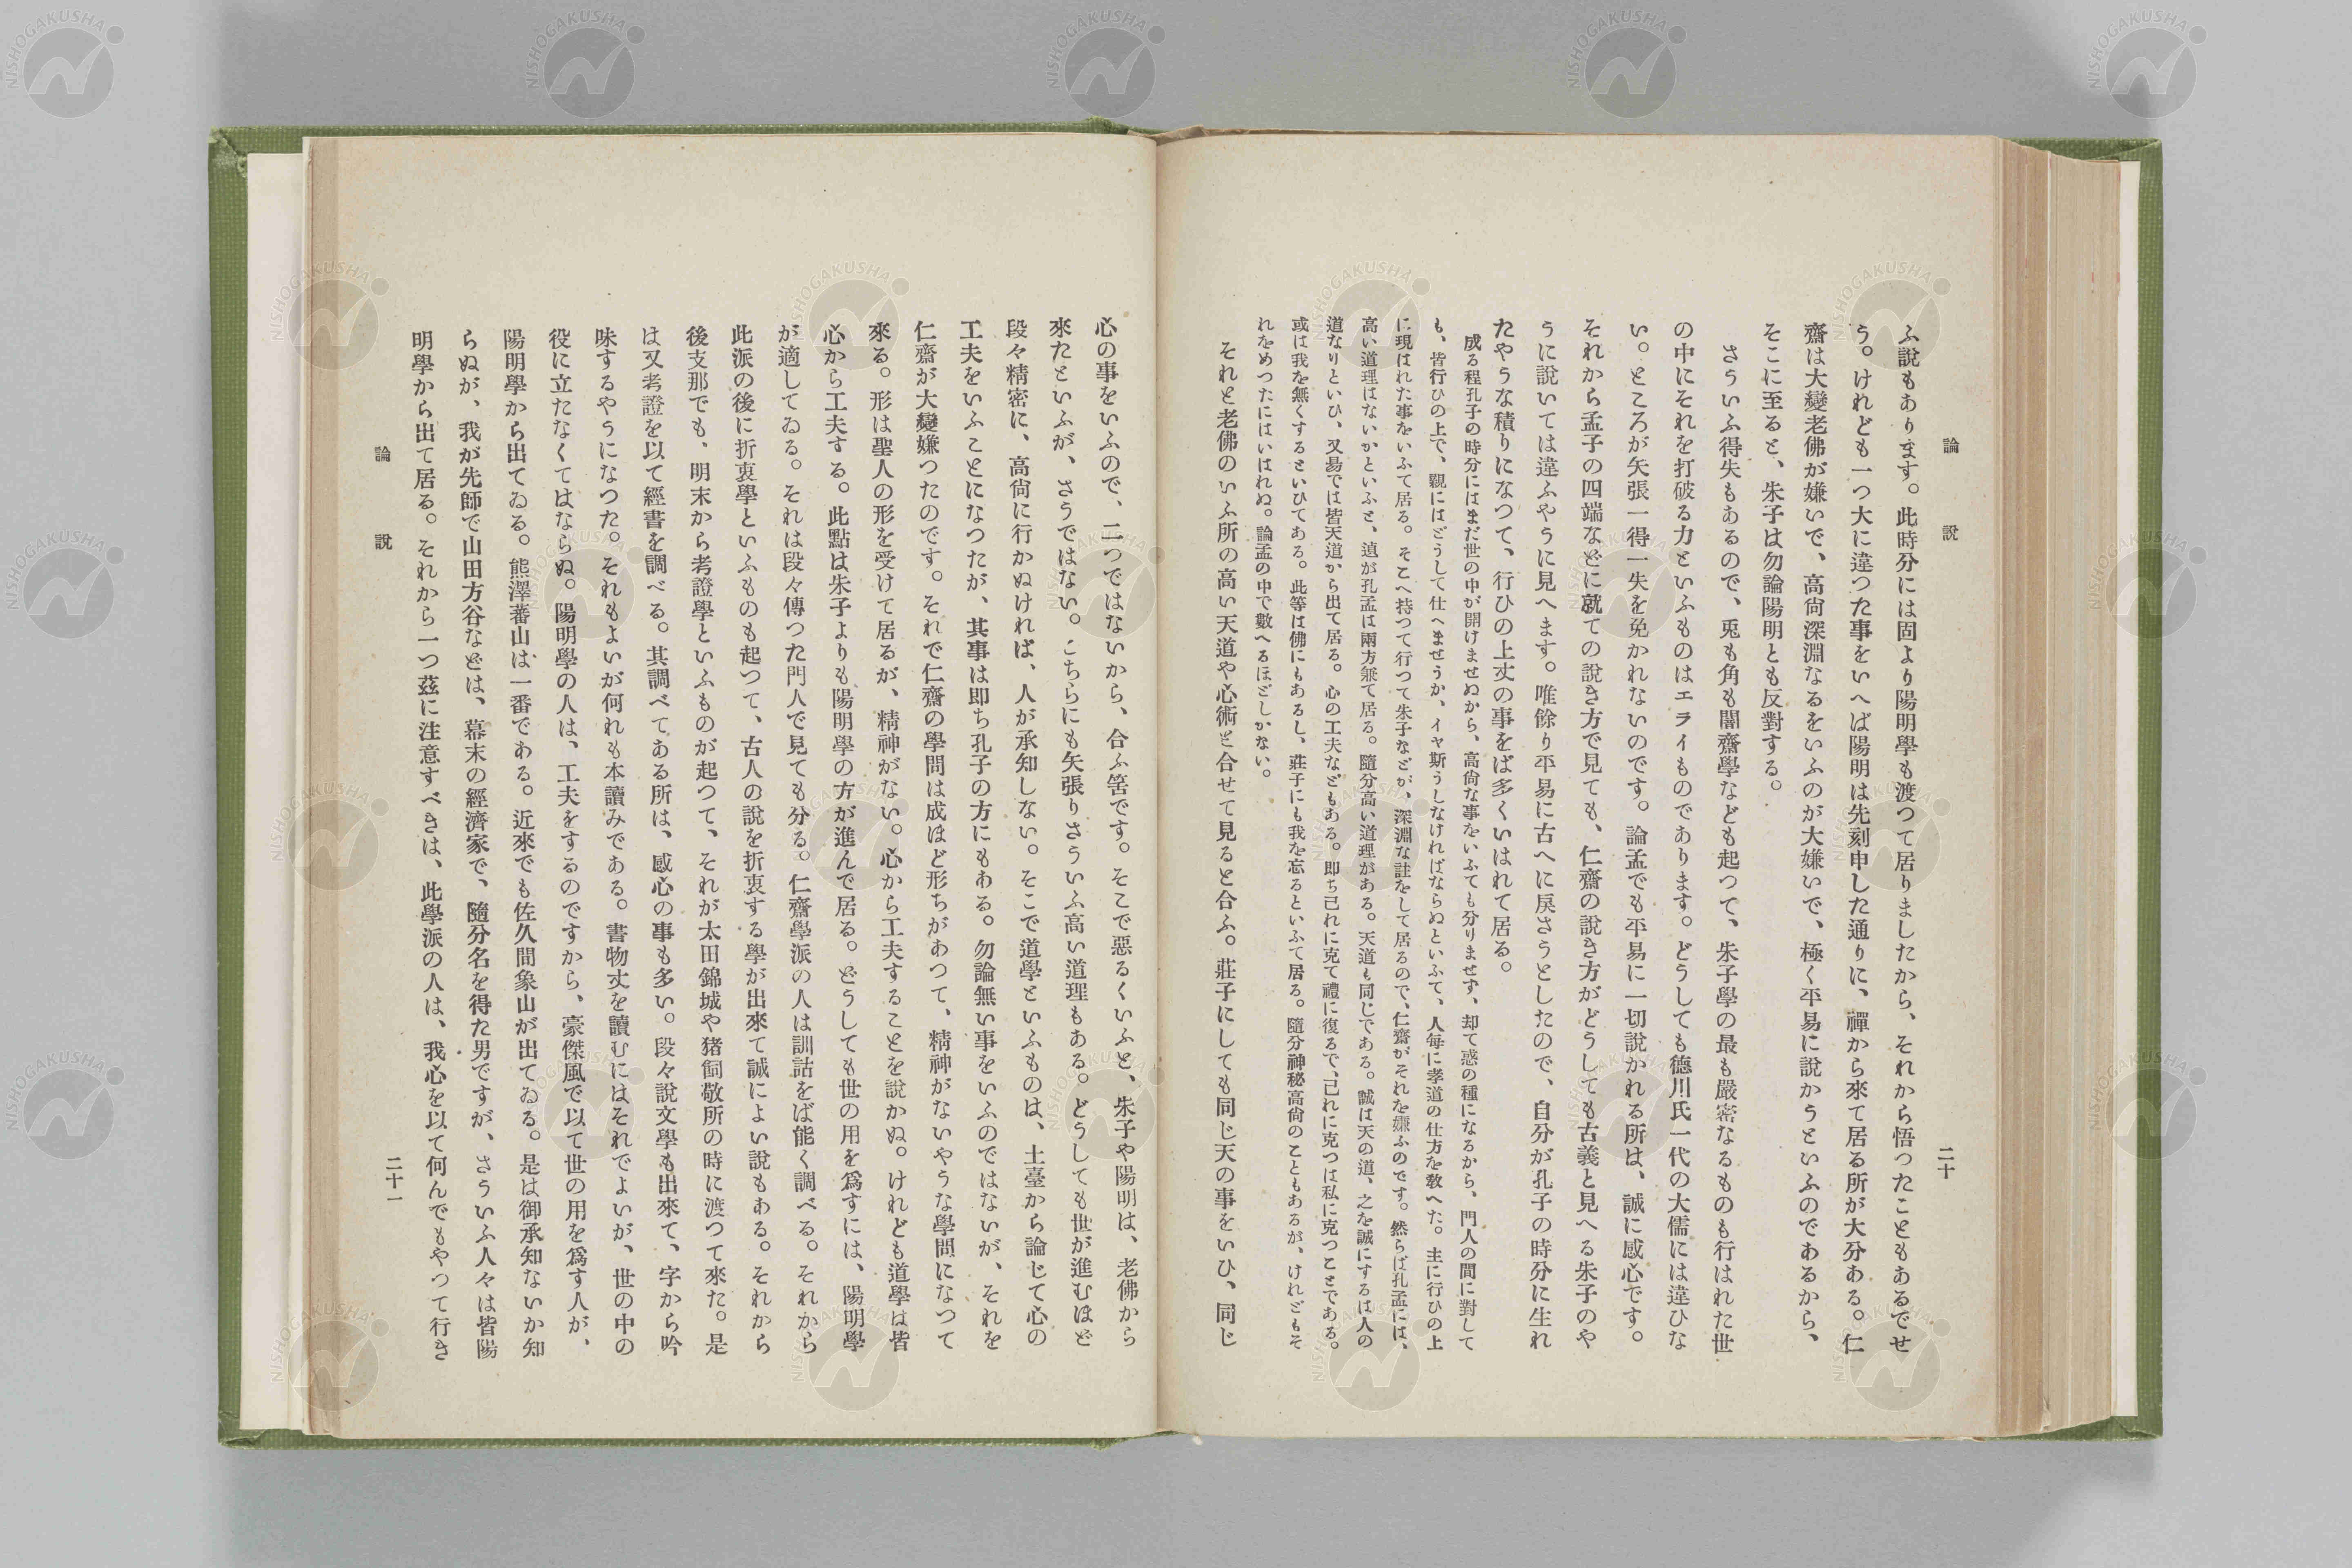 論說
二十
ふ說もあります。此時分には固より陽明學も渡つて居りましたから、それから悟つたこともあるでせ
う。けれども一つ大に違つた事をいへば陽明は先刻申した通りに、禪から來て居る所が大分ある。仁
齋は大變老佛が嫌いで、高尙深淵なるをいふのが大嫌いで、極く平易に說かうといふのであるから、
そこに至ると、朱子は勿論陽明とも反對する。
さういふ得失もあるので、兎も角も闇齋學なども起つて、朱子學の最も嚴密なるものも行はれた世
の中にそれを打破る力といふものはエライものであります。どうしても德川氏一代の大儒には違ひな
い。ところが矢張一得一失を免かれないのです。論孟でも平易に一切說かれる所は、誠に感心です。
それから孟子の四端などに就ての說き方で見ても、仁齋の說き方がどうしても古義と見へる朱子のや
うに說いては違ふやうに見へます。唯餘り平易に古へに戾さうとしたので、自分が孔子の時分に生れ
たやうな積りになつて、行ひの上丈の事をば多くいはれて居る。
成る程孔子の時分にはまだ世の中が開けませぬから、高尙な事をいふても分りませず、却て惑の種になるから、門人の間に對して
も、皆行ひの上で、親にはどうして仕へませうか、イヤ斯うしなければならぬといふて、人每に孝道の仕方を敎へた。主に行ひの上
に現はれた事をいふて居る。そこへ持つて行つて朱子などが、深淵な註をして居るので、仁齋がそれを嫌ふのです。然らば孔孟には、
高い道理はないかといふと、遉が孔孟は兩方兼て居る。隨分高い道理がある。天道も同じである。誠は天の道、之を誠にするは人の
道なりといひ、又易では皆天道から出て居る。心の工夫などもある。卽ち己れに克て禮に復るで、己れに克つは私に克つことである。
或は我を無くするといひてある。此等は佛にもあるし、莊子にも我を忘るといふて居る。隨分神秘高尙のこともあるが、けれどもそ
れをめつたにはいはれぬ。論孟の中で數へるほどしかない。
それと老佛のいふ所の高い天道や心術と合せて見ると合ふ。莊子にしても同じ天の事をいひ、同じ
心の事をいふので、二つではないから、合ふ筈です。そこで惡るくいふと、朱子や陽明は、老佛から
來たといふが、さうではない。こちらにも矢張りさういふ高い道理もある。どうしても世が進むほど
段々精密に、高尙に行かぬければ、人が承知しない。そこで道學といふものは、土臺から論じて心の
工夫をいふことになつたが、其事は卽ち孔子の方にもある。勿論無い事をいふのではないが、それを
仁齋が大變嫌つたのです。それで仁齋の學問は成ほど形ちがあつて、精神がないやうな學問になつて
來る。形は聖人の形を受けて居るが、精神がない。心から工夫することを說かぬ。けれども道學は皆
心から工夫する。此點は朱子よりも陽明學の方が進んで居る。どうしても世の用を爲すには、陽明學
が適してゐる。それは段々傳つた門人で見ても分る。仁齋學派の人は訓詁をば能く調べる。それから
此派の後に折衷學といふものも起つて、古人の說を折衷する學が出來て誠によい說もある。それから
後支那でも、明末から考證學といふものが起つて、それが太田錦城や猪飼敬所の時に渡つて來た。是
は又考證を以て經書を調べる。其調べてある所は、感心の事も多い。段々說文學も出來て、字から吟
味するやうになつた。それもよいが何れも本讀みである。書物丈を讀むにはそれでよいが、世の中の
役に立たなくてはならぬ。陽明學の人は、工夫をするのですから、豪傑風で以て世の用を爲す人が、
陽明學から出てゐる。熊澤蕃山は一番である。近來でも佐久間象山が出てゐる。是は御承知ないか知
らぬが、我が先師で山田方谷などは、幕末の經濟家で、隨分名を得た男ですが、さういふ人々は皆陽
明學から出て居る。それから一つ茲に注意すべきは、此學派の人は、我心を以て何んでもやつて行き
論說
二十一